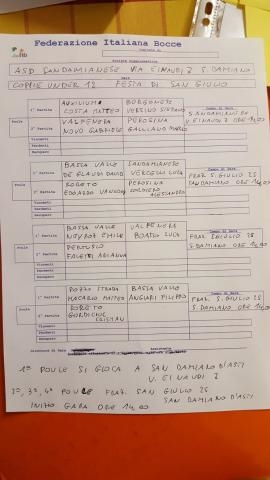 Federazione Italiana Bocce
Comitato di
Società Organizzatrice
ASD SANDAMIANESE VIA EINAUDI 2 S. DAMIANO
Gara
COPPIE UNDER 12 FESTA DI SAN GIULIO
Campo di Gara
AUXILIUM BORGONESE
1° Partita COSTA MATTEO VERSINO STEFANO S. DAMIANO D'ASTI
Poule VALPENERA PEROSINA V. EINAUDI 2 ORE 14,00
2° Partita NOVO GABRIELE GALLIANO MARIO
Vincenti
Perdenti
Recupero
Campo di Gara
BASSA VALLE SANDAMIANESE FRAZ. S. GIULIO 25
1° Partita DE CLAUDI DAVIDE VERCELLI LUCA SANDAMIANO ORE 14,00
Poule RORETO PEROSINA
2° Partita EDOARDO SOLDIERO ALESSANDRO
Vincenti
Perdenti
Recupero
Campo di Gara
BASSA VALLE VALPENERA FRAZ. S. GIULIO 25
1° Partita NEYROZ EMILE BOATSO LUCA S. DAMIANO ORE 14,00
Poule PERTUSIO
2° Partita FALETTI ARIANNA
Vincenti
Perdenti
Recupero
Campo di Gara
POZZO STRADA BASSA VALLE FRAZ. S. GIULIO 25
1° Partita MACARIO MATTEO ANGIARI FILIPPO S. DAMIANO ORE 14,00
Poule RORETO
2° Partita GORDICIUC CRISTIAN
Vincenti
Perdenti
Recupero
Direttore di Gara
Assistente
1° POULE SI GIOCA A SAN DAMIANO D'ASTI
V. EINAUDI 2
2°, 3°, 4° POULE FRAZ. SAN GIULIO 25
SAN DAMIANO D'ASTI
INIZIO GARA ORE 14,00